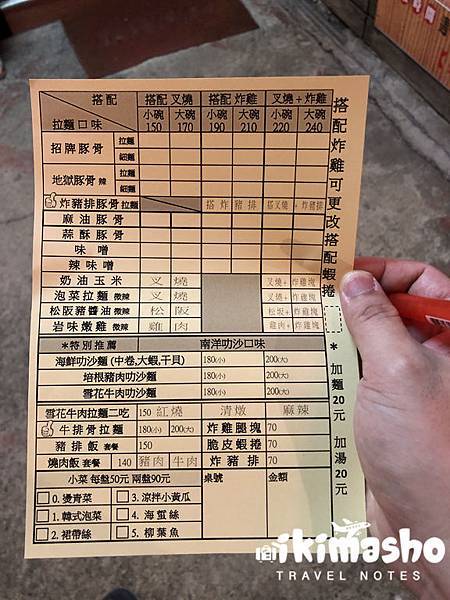 搭配 搭配 叉燒 搭配 炸雞 叉燒+炸雞
拉麵口味 小碗 150 大碗 170 小碗 190 大碗 210 小碗 220 大碗 240
招牌豚骨 拉麵
細麵
地獄豚骨 辣 拉麵
細麵
炸豬排豚骨 拉麵 搭炸豬排 搭叉燒 +炸豬排
麻油豚骨
蒜酥豚骨
味噌
辣味噌
奶油玉米 叉燒 叉燒+炸雞塊
泡菜拉麵 微辣 叉燒 叉燒+炸雞塊
松阪豬醬油 微辣 松阪 松坂+炸雞塊
岩味嫩雞 微辣 雞肉 雞肉+炸雞塊
*特別推薦 南洋叻沙口味
海鮮叻沙麵 (中卷,大蝦,干貝) 180(小) 200(大)
培根豬肉叻沙麵 180(小) 200(大)
雪花牛肉叻沙麵 180(小) 200(大)
雪花牛肉拉麵二吃 150 紅燒 清燉 麻辣
牛排骨拉麵 180(小) 200(大) 炸雞腿塊 70
豬排飯 套餐 150 脆皮蝦捲 70
燒肉飯 套餐 140 豬肉 牛肉 炸豬排 70
小菜 每盤50元 兩盤90元 桌號 金額
0. 燙青菜 3. 涼拌小黃瓜
1. 韓式泡菜 4. 海蜇絲
2. 裙帶絲 5. 柳葉魚
搭配炸雞可更改搭配蝦捲
* 加麵20元 加湯20元
ikimasho
TRAVEL NOTES